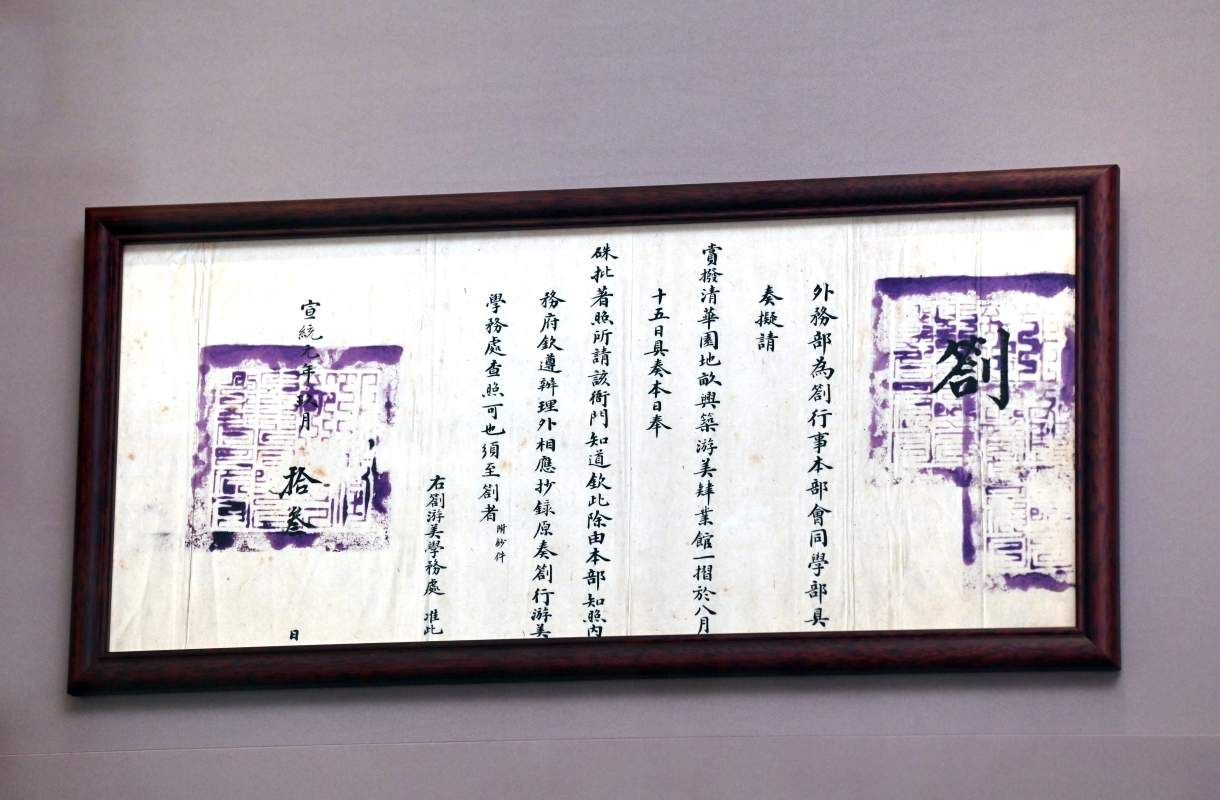 劄
外務部為劄行事本部會同學部具
奏擬請
賞撥清華園地畝興築游美肄業館一摺於八月
十五日具奏本日奉
硃批著照所請該衙門知道欽此除由本部知照內
務府欽遵辦理外相應抄錄原奏劄行游美
學務處查照可也須至劄者
附鈔件
右劄游美學務處 准此
宣統元年玖月
拾叁
日